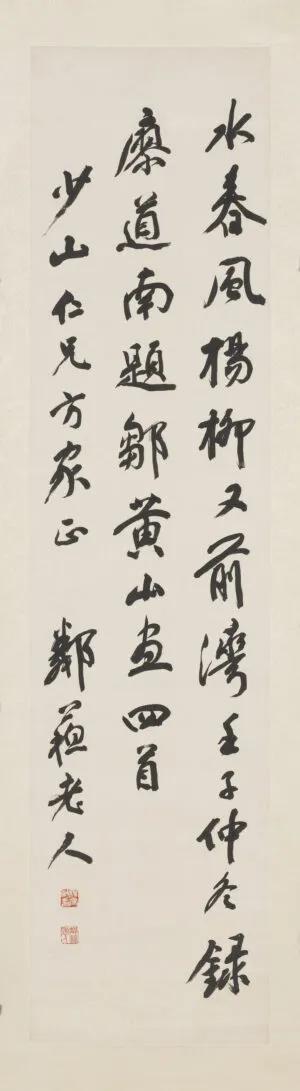 水春風楊柳又前灣壬子仲冬録
廖道南題鄒黃山畫四首
少山仁兄方家正 鄰蘓老人